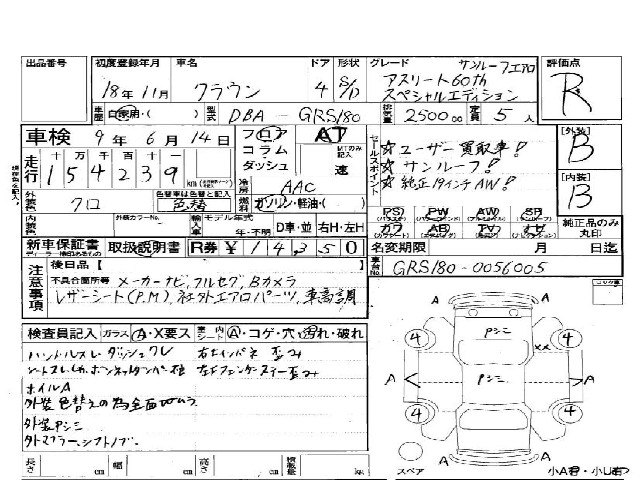 出品番号 初度登録年月 車名 ドア 形状 グレード サンルーフエアロ 評価点
18年11月 クラウン 4 S/D アスリート60th R
スペシャルエディション
車歴 自家用・( ) 型式 DBA - GRS180 排気量 2500 cc 定員 5人
車検 9年6月14日 フロア AT セールスポイント ☆ユーザー買取車! [外装]
走行 十万千百十一 コラム MTのみ記入 ☆サンルーフ! B
154239 km ダッシュ 速 ☆純正19インチAW! [内装]
冷房 AAC B
外装色 クロ 色替車は色替と記入 色替 燃料 ガソリン・軽油・( ) PS PW AW SR 純正品のみ丸印
内装色 外装カラーNo. 輸入車 モデル年式 年・不明 D車・並 右H・左H カワ AB TV ナビ
新車保証書 取扱説明書 R券 ¥14350 名変期限 月 日迄
注意事項 後日品【 】 車台No. GRS180-0056005
不具合箇所等 メーカーナビ, フルセグ, Bカメラ
レザーシート(P.M), 社外エアロパーツ, 車高調
検査員記入 ガラス A・X要ス 室内シート A・コゲ・穴・汚れ・破れ
ハンドルスレ ダッシュクレ 右インパネ 歪み
ホイルA
外装色替えの為全面
外装Pシミ
外マフラー, シフトノブ.
長さ cm 幅 cm 高さ cm 積載量 kg
A A
4 Pシミ 4
××
A Pシミ A
4 4
A A
スペア 小A有・小U有